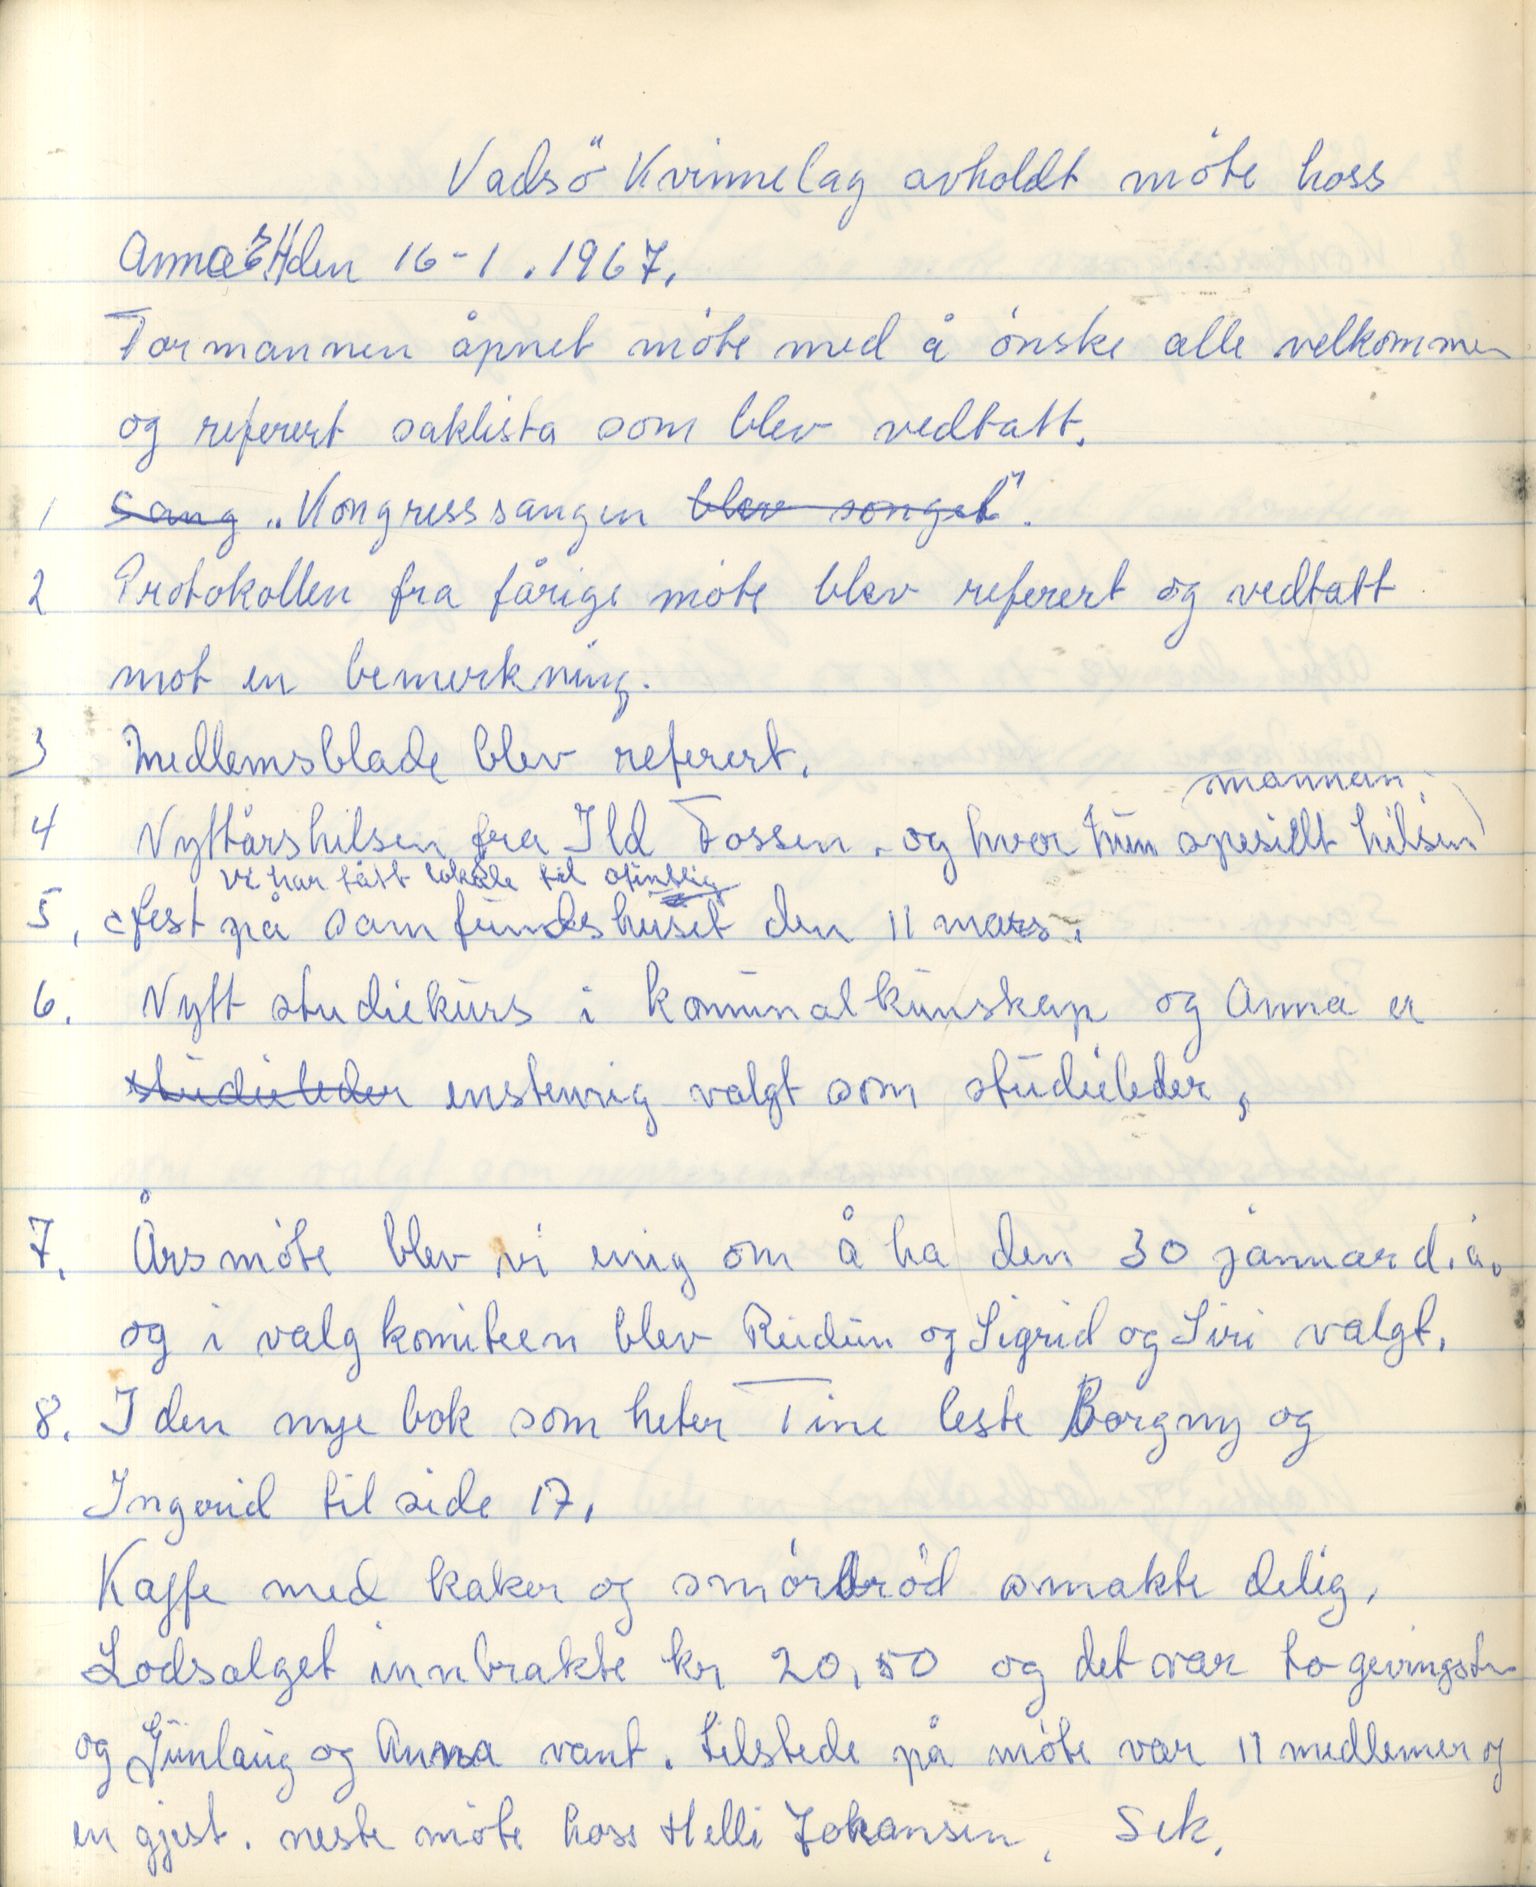 Vadsö Kvinnelag avholdt möte hoss
Anna E H den 16-1. 1967.
Formannen åpnet möte med å önske alle velkommen
og referert saklista som blev vedtatt.
1 Sang „Kongressangen blev songet".
2 Protokollen fra fårige möte blev referert og vedtatt
mot en bemerkning.
3 Medlemsblade blev referert.
mannen
4 Nyttårshilsen fra Ild Fossen. og hvor hun spesielt hilsen
vi har fått lokale til ofintlig
5, fest på samfundshuset den 11 mars.
6. Nytt studiekurs i komunalkunskap og Anna er
studieleder enstemig valgt som studieleder,
7. Årsmöte blev vi enig om å ha den 30 januar d.å.
og i valgkomiteen blev Reidun og Sigrid og Siri valgt.
8. I den nye bok som heter Tine leste Borgny og
Ingvrid til side 17.
Kaffe med kaker og smörbröd smakte delig.
Lodsalget innbrakte kr 20,50 og det var to gevingster
og Gunlaug og Anna vant. tilstede på möte var 11 medlemer og
en gjest. neste möte hoss Helli Johansen. Sek.